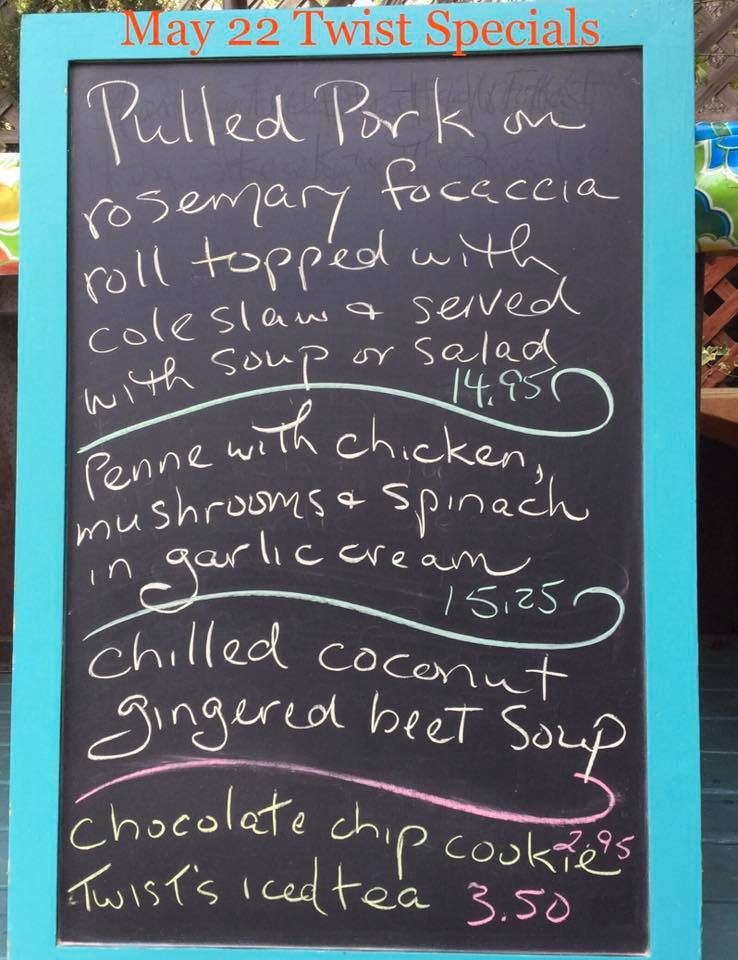 May 22 Twist Specials
Pulled Pork on
rosemary focaccia
roll topped with
coleslaw & served
with soup or salad
14.95
Penne with chicken,
mushrooms & spinach
in garlic cream
15.25
Chilled coconut
gingered beet Soup
Chocolate chip cookie 2.95
Twist's iced tea 3.50